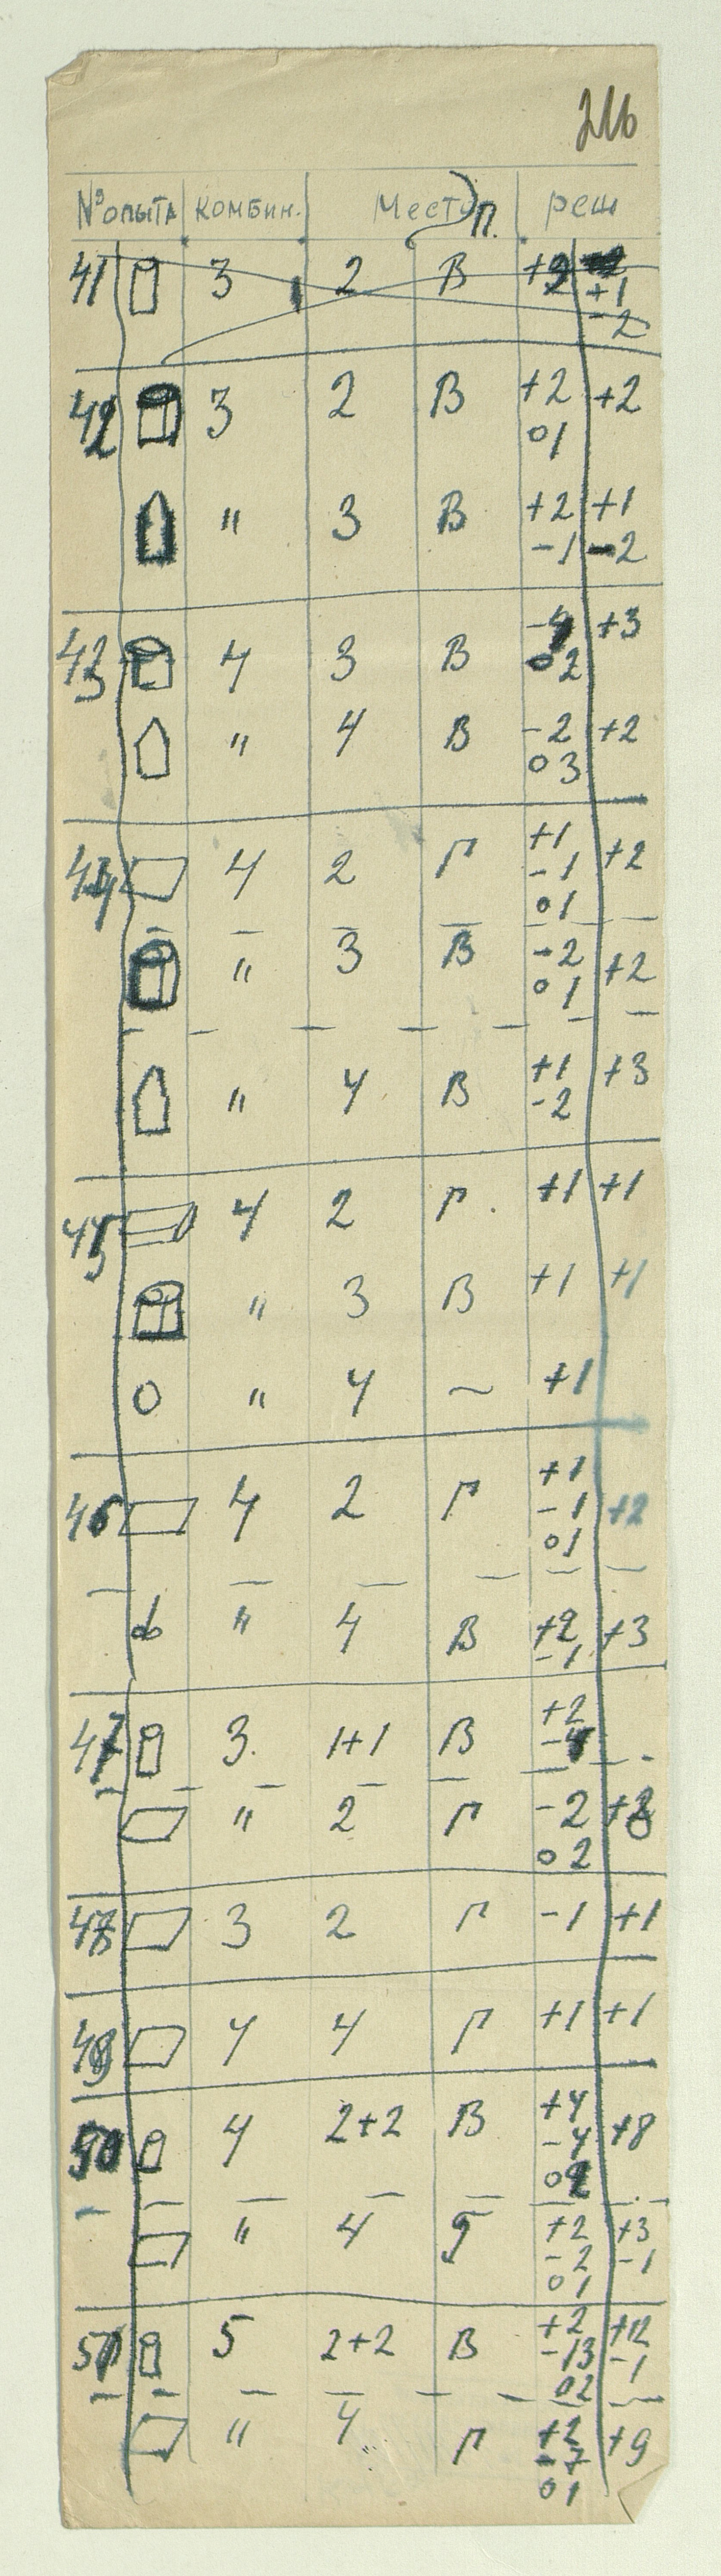 № опыта комбин. Место п. реш
41 3 2 В +2
+1
-2
42 3 2 В +2 +2
01
" 3 В +2 +1
-1 -2
43 4 3 В +3
02
" 4 В -2 +2
03
44 4 2 Г +1 +2
-1
01
" 3 В -2 +2
01
" 4 В +1 +3
-2
45 4 2 Г. +1 +1
" 3 В +1 +1
" 4 ~ +1
46 4 2 Г +1 +2
-1
01
" 4 В +2 +3
-1
47 3. 1+1 В +2
" 2 Г -2
02
48 3 2 Г -1 +1
49 4 4 Г +1 +1
50 4 2+2 В +4 +8
-4
" 4 +2 +3
-2 -1
01
51 5 2+2 В +2 +12
-13 -1
02
" 4 Г +2 +9
-7
01